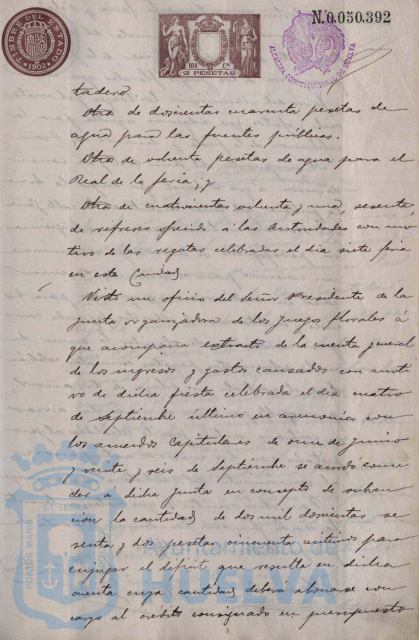 N.0.050.392
TIMBRE DEL ESTADO
1902
2 PESETAS
ALCALDIA CONSTITUCIONAL DE HUELVA
tadero.
Otro de doscientas cuarenta pesetas de
agua para las fuentes públicas.
Otro de ochenta pesetas de agua para el
Real de la feria; y
Otro de cuatrocientas ochenta y una, sesenta
de refrescos ofrecido á las Autoridades con mo
tivo de las regatas celebradas el dia siete
en esta Ciudad.
Visto un oficio del Señor Presidente de la
Junta organizadora de los Juegos florales á
que acompaña extracto de la cuenta general
de los ingresos y gastos causados con moti
vo de dicha fiesta celebrada el dia cuatro
de Septiembre último en armonía con
los acuerdos Capitulares de once de Junio
y veinte y seis de Septiembre se acordó conce
der á dicha Junta en concepto de subven
ción la cantidad de dos mil doscientas se
senta y dos pesetas cincuenta céntimos para
enjugar el déficit que resulta en dicha
cuenta cuya cantidad deberá abonarse con
cargo al crédito consignado en presupuesto
PORTUS MARIS
ET TERRÆ
Ayuntamiento de
HUELVA